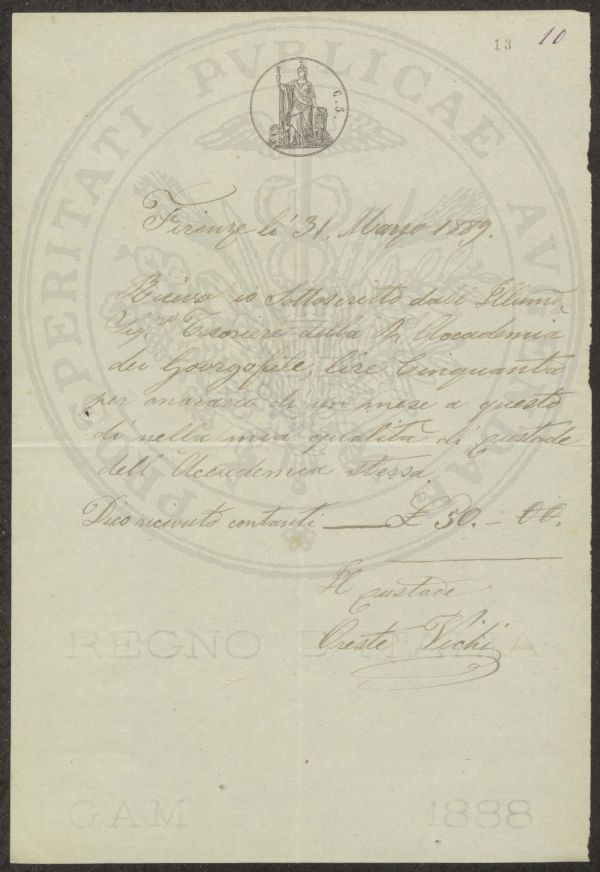 13 10
C. 5.
PROSPERITATI PUBLICAE AUGENDAE
Firenze li 31. Marzo 1889.
Ricevo io Sottoscritto dall' Illumo
Sig.re Tesoriere della R. Accademia
dei Goorgofile, lire Cinquanta
per onorario di un mese a questo
dì nella mia qualità di Custode
dell' Accademia stessa
Dico ricevuto contanti — £ 50. - 00.
Il Custode
Oreste Vichi
REGNO D'ITALIA
GAM 1888